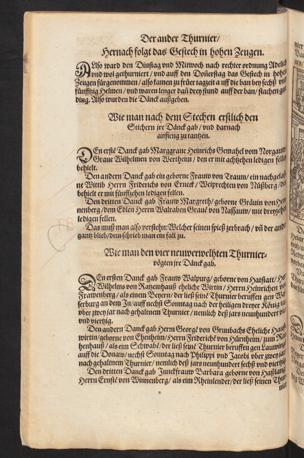 Der ander Thurnier/
Hernach folgt das Gestech in hohen Zeugen.
Also ward den Dinstag und Mitwoch nach rechter ordnung Adelich
und wol gethurniert / und auff den Donerstag das Gestech in hohen
Zeugen fürgenommen / also kamen zu früer tagzeit auff die ban bey sechs
fünfftzig Helmen / und waren lenger dañ drey stund auff der ban / stachen
ding. Also wurden die Dänck außgeben.
Wie man nach dem Stechen erstlich den
Stichern jre Dänck gab / und darnach
anfieng zu tantzen.
DEn erste Danck gab Marggraue Heinrichs Gemahel vom Norgauw
Graue Wilhelmen von Wertheim / den er mit achtzehen ledigen fellen
behielt.
Den andern Danck gab ein geborne Frauw von Traum / ein nachgelaßne
Wittib Herrn Friderichs von / Weiprechten von Nüßberg /
behielt er mit fünfftzehen ledigen fellen.
Den dritten Danck gab Frauw Margreth / geborne Gräuin von Hennenberg
/ dem Edlen Herrn Walraben Graue von Nassauw / mit dreyzehen
ledigen fellen.
Das muß man also verstehn: Welcher seinen spieß zerbrach / und der ander
gantz blieb / dem schrieb man ein fall zu.
Wie man den vier neuwerwelhten Thurnier-
vögten jre Dänck gab.
DEn ersten Danck gab Frauw Walpurg / geborne von Hatstatt / Herr
Wilhelms von Ratzenhauß eheliche Würtin / Herrn Heinrichen von
Frawenberg / als einem Beyern / der ließ seine Thurnier beruffen gen
an dem Jn / auff nechst Sonntag nach der heiligen dreyer König tag
uber zwey jar nach gehaltenem Thurnier / nemlich deß jars neunhundert
und viertzig.
Den andern Danck gab Herrn George von Grumbachs Eheliche Haußwirtin
/ geborne von Ehenheim / Herrn Friderich von Hürnheim / zum
/ als ein Schwab / der ließ seine Thurnier beruffen gen Lauwingen
auff die Donaw / nechst Sonntag nach Philippi und Jacobi uber zwey jar
nach gehaltenem Thurnier / nemlich deß jars neunhundert sechs und viertzig.
Den dritten Danck gab Junckfrauw Barbara geborne von Hatstatt
Herrn Ernst von Winnenberg / als ein Rheinlender / der ließ seinen